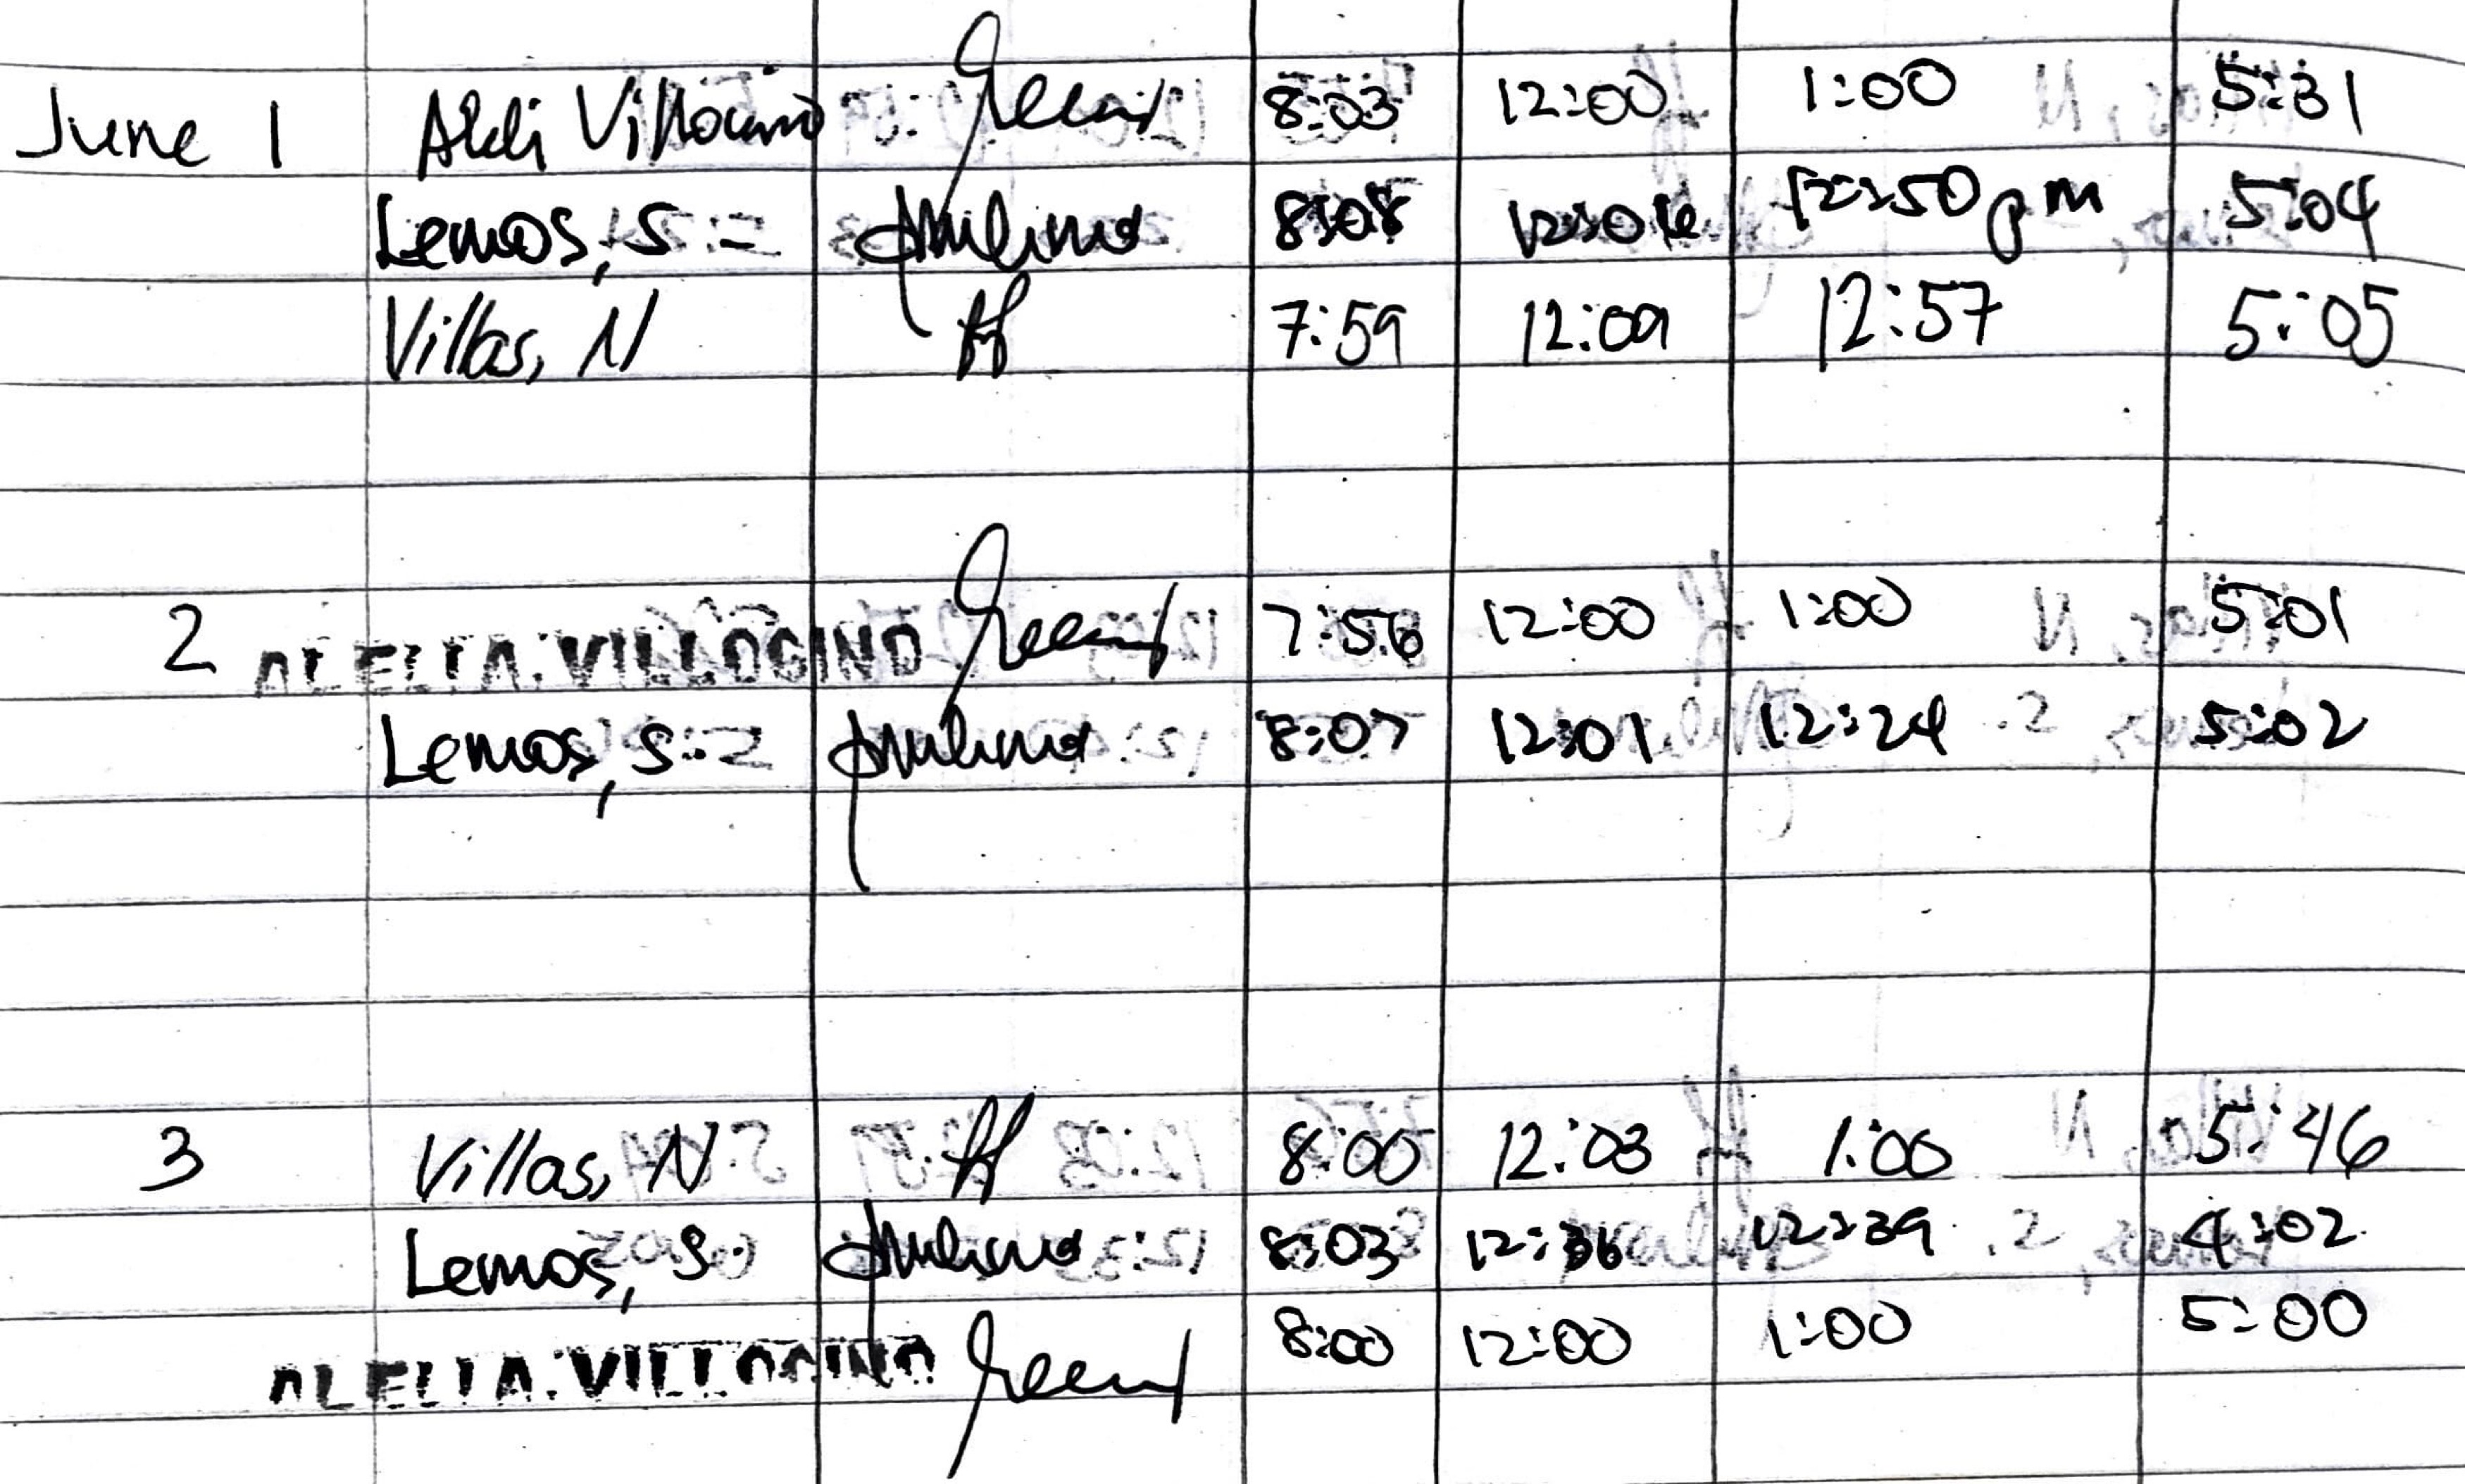 June 1 Villocino 8:03 12:00 1:00 5:31
Lemos, S. 8:08 12:50 pm 5:04
Villas, N 7:59 12:09 12:57 5:05
2 VILLOCINO 7:56 12:00 1:00 5:01
Lemos, S. 8:07 12:01 12:24 5:02
3 Villas, N. 8:00 12:03 1:00 5:46
Lemos, S. 8:03 12:36 12:39 4:02
VILLOCINO 8:00 12:00 1:00 5:00